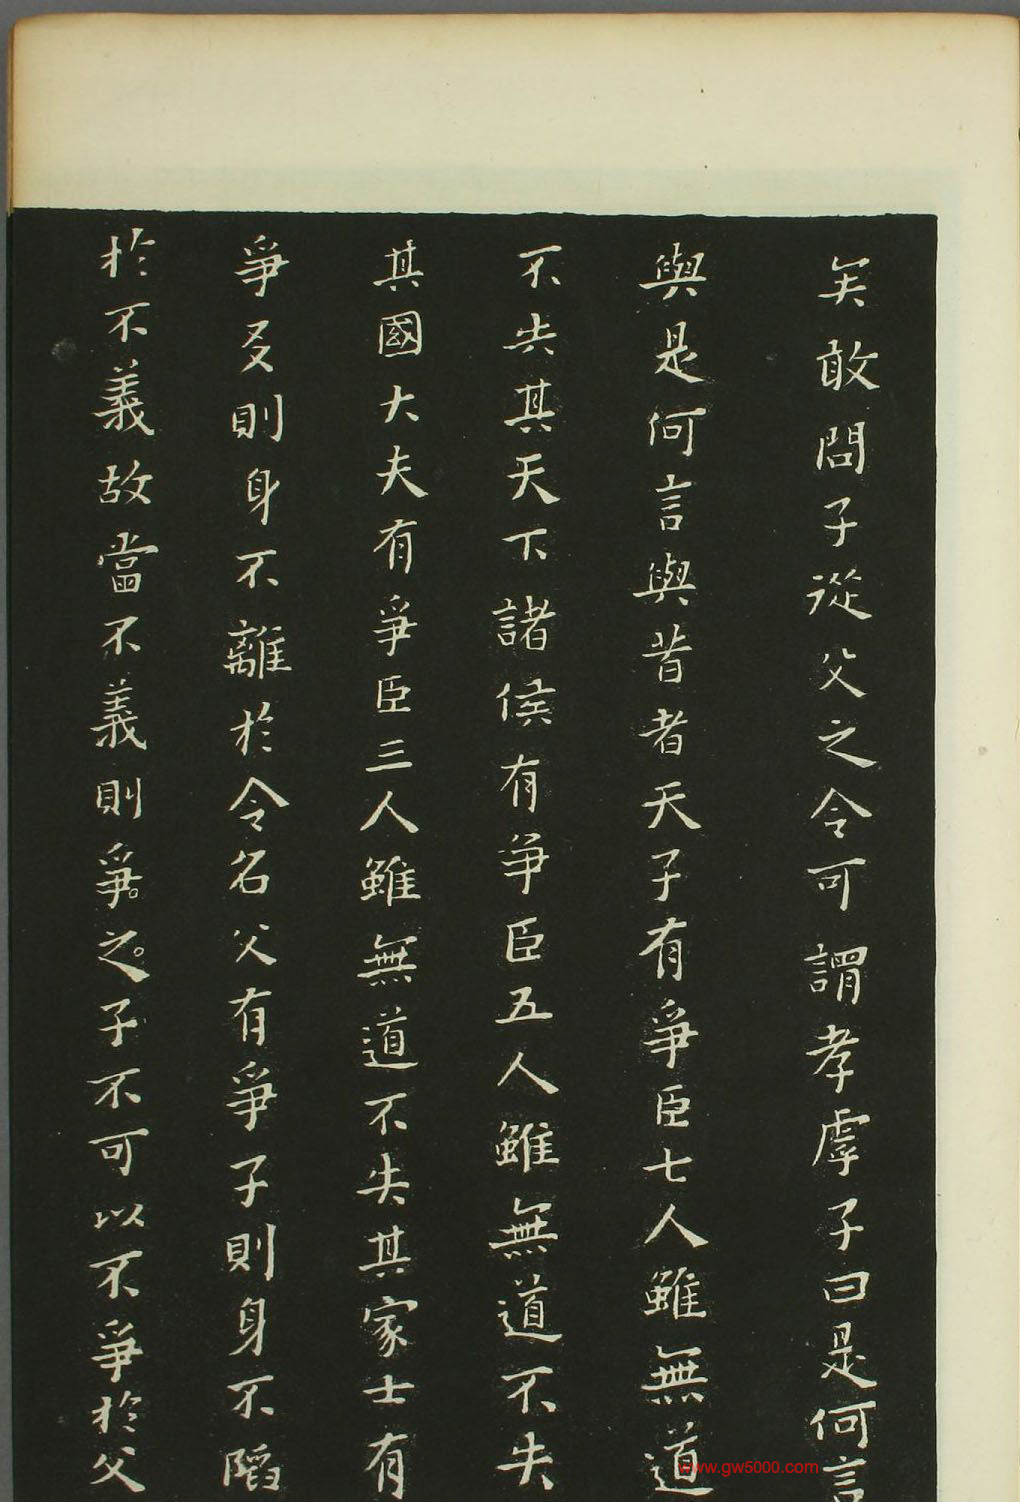 矣敢問子從父之令可謂孝虖子曰是何言
與是何言與昔者天子有爭臣七人雖無道
不失其天下諸侯有爭臣五人雖無道不失
其國大夫有爭臣三人雖無道不失其家士有
爭友則身不離於令名父有爭子則身不陷
於不義故當不義則爭之子不可以不爭於父
www.gw5000.com